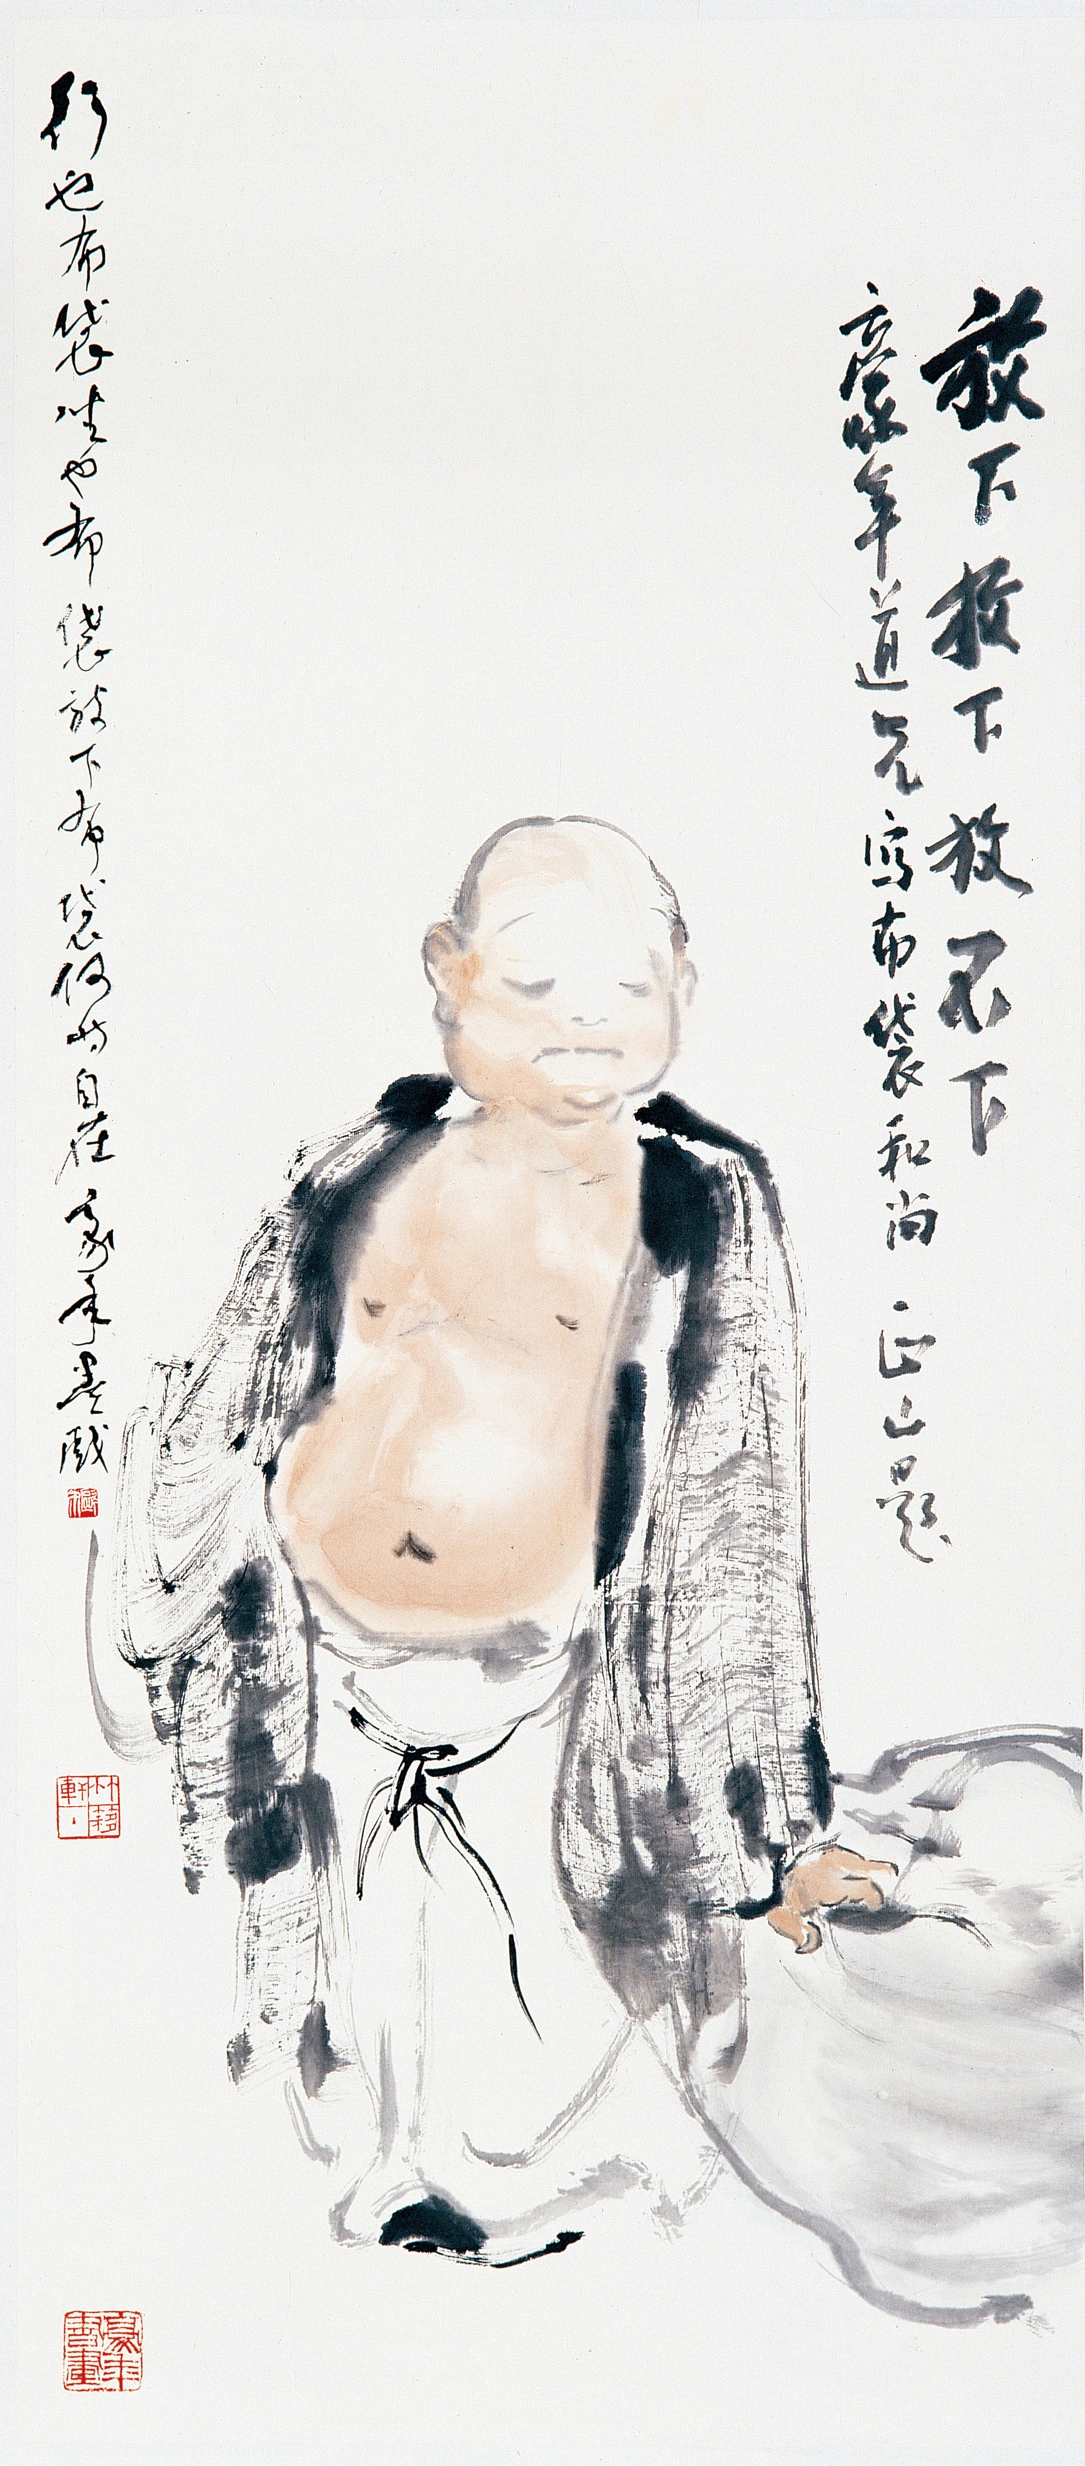 放下放下放不下
豪年道兄寫布袋和尚 正山題
行也布袋坐也布袋放下布袋何等自在 豪年墨戲
豪年書畫